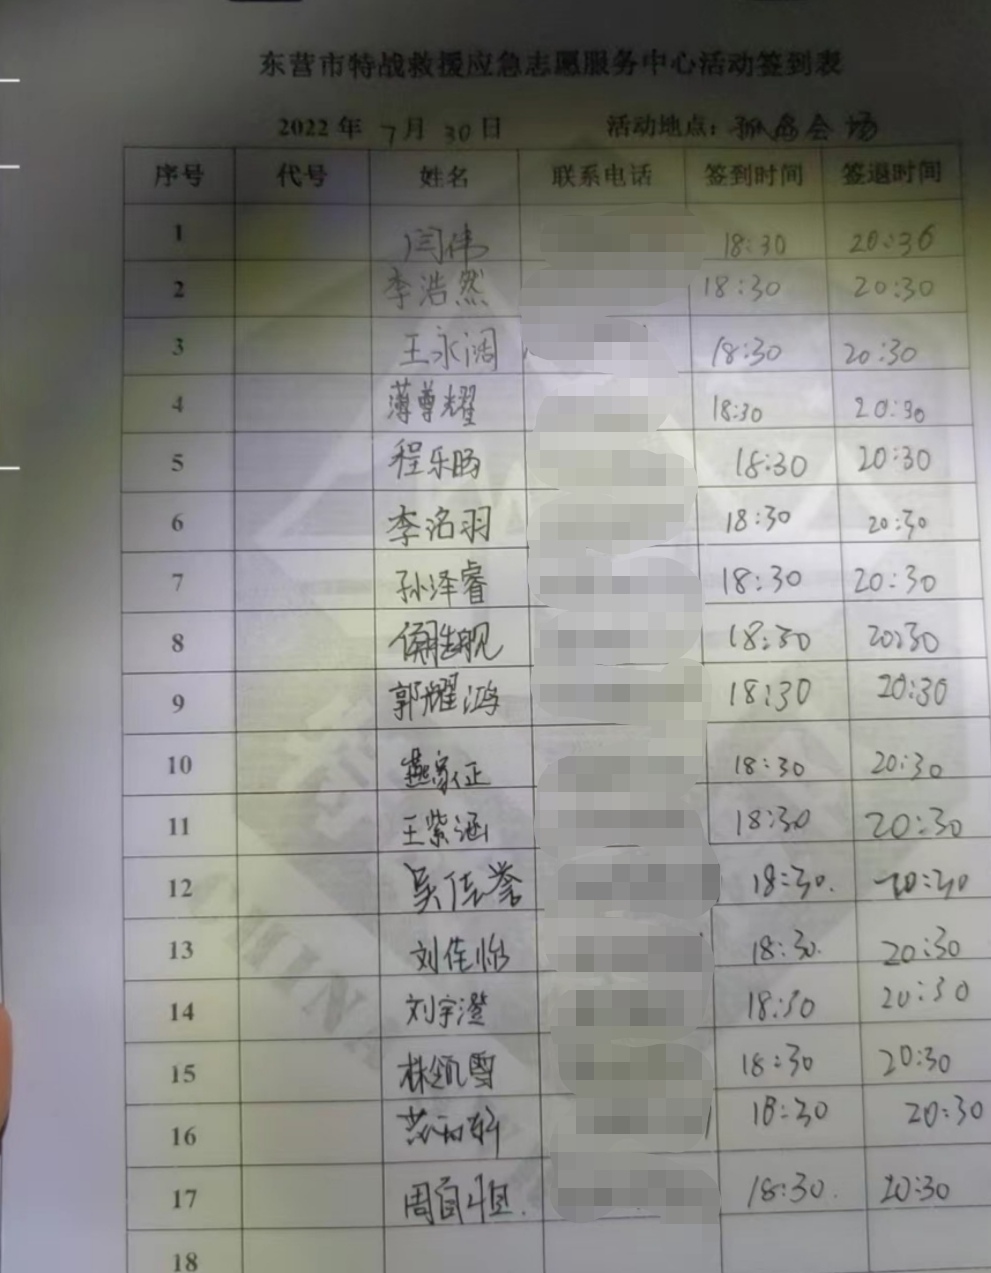 东营市特战救援应急志愿服务中心活动签到表
2022 年 7 月 30 日 活动地点: 孤岛会场
序号 代号 姓名 联系电话 签到时间 签退时间
1 闫伟 18:30 20:30
2 李浩然 18:30 20:30
3 王永阔 18:30 20:30
4 薄尊耀 18:30 20:30
5 程乐旸 18:30 20:30
6 李洺羽 18:30 20:30
7 孙泽睿 18:30 20:30
8 18:30 20:30
9 郭耀鸿 18:30 20:30
10 燕家征 18:30 20:30
11 王紫涵 18:30 20:30
12 吴佳誉 18:30. 20:30
13 刘佳怡 18:30. 20:30
14 刘宇澄 18:30 20:30
15 18:30 20:30
16 18:30 20:30
17 周自恒. 18:30. 20:30
18